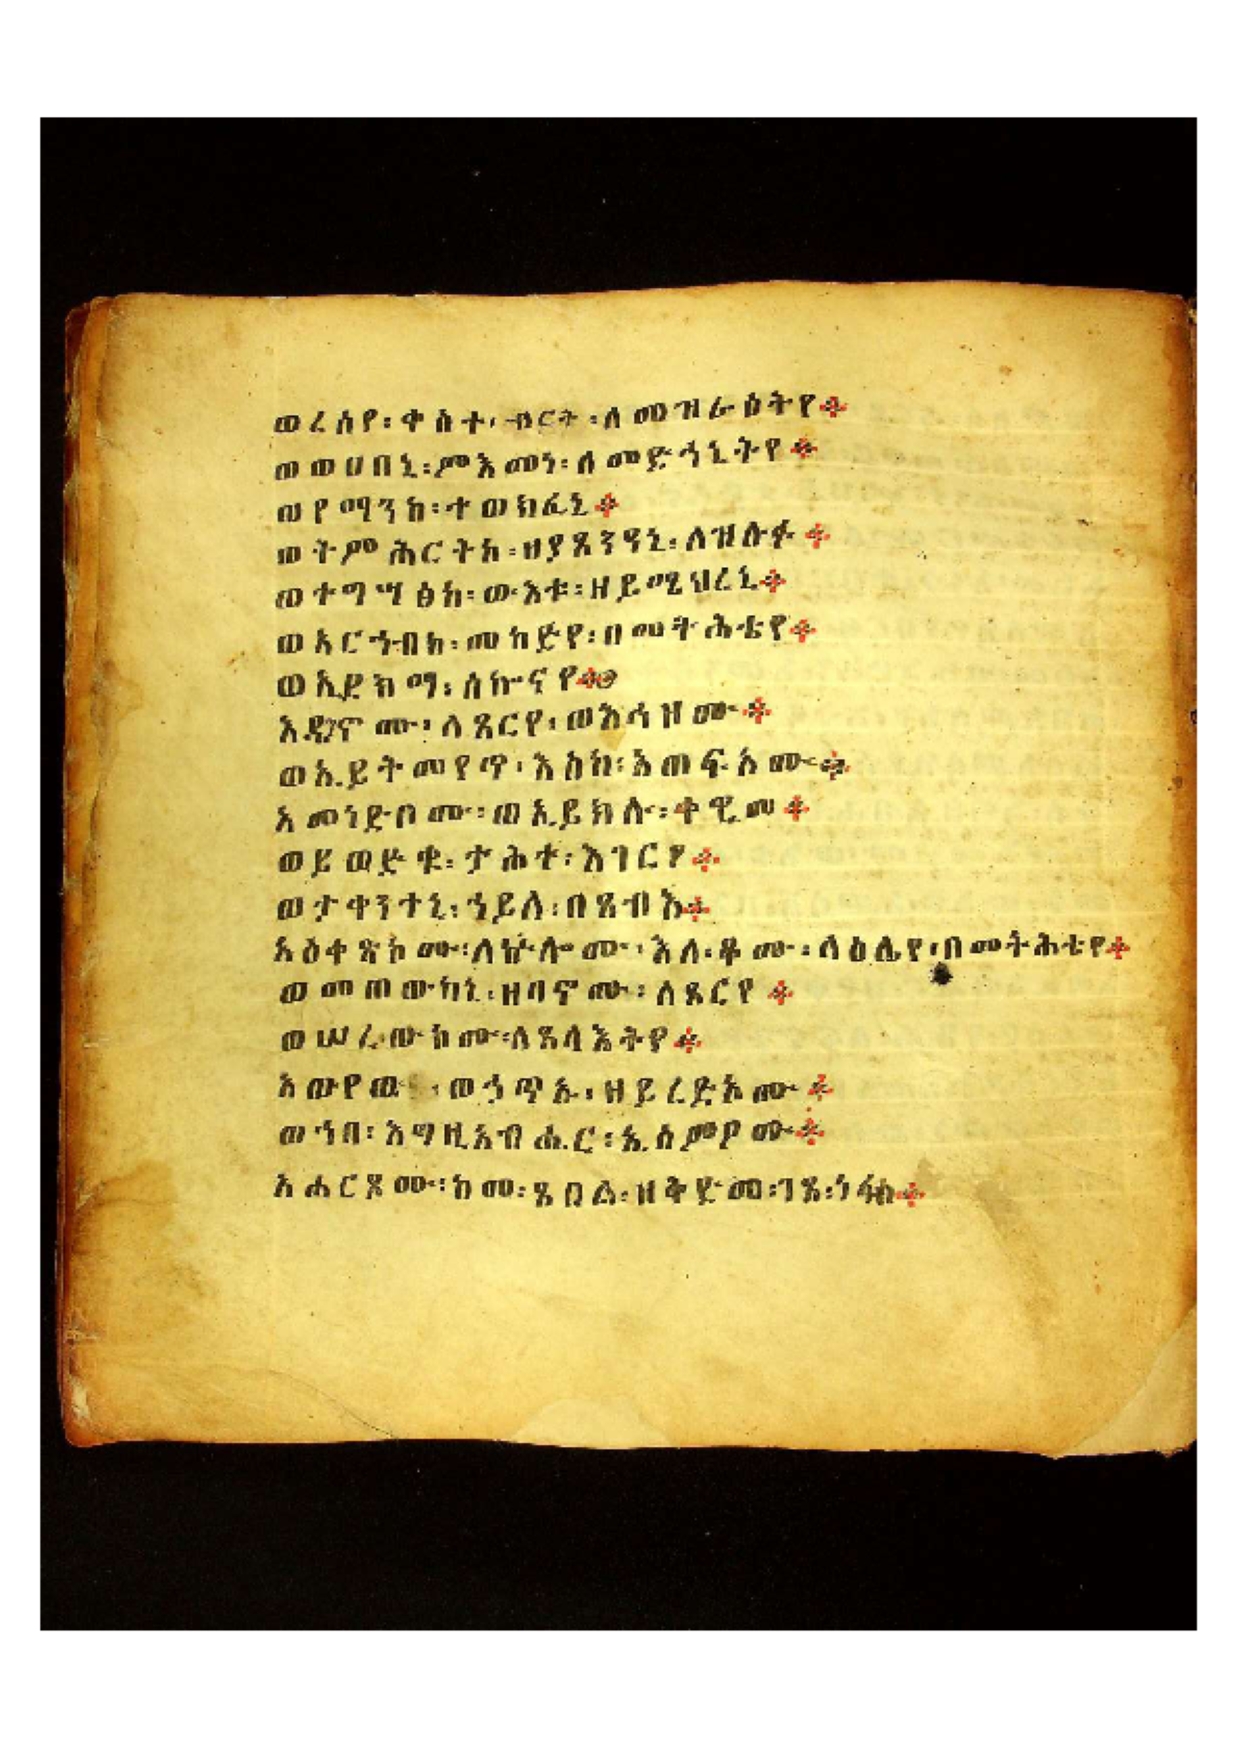 ወረሰየ፡ቀስተ፡ብርት፡ለመዝራዕትየ።
ወወሀበኒ፡ምእመነ፡ለመድኀኒትየ።
ወየማንከ፡ተወክፈኒ።
ወትምሕርትከ፡ዘያጸንዓኒ፡ለዝሉፉ።
ወተግሣፅከ፡ውእቱ፡ዘይሜህረኒ።
ወአርኀብከ፡መከድየ፡በመትሕቴየ።
ወኢደክማ፡ሰኰናየ።
እዴግኖሙ፡ለጸርየ፡ወእኅዞሙ።
ወኢይትመየጥ፡እስከ፡አጠፍኦሙ።
አመነድቦሙ፡ወኢይክሉ፡ቀዊመ።
ወይወድቁ፡ታሕተ፡እገርየ።
ወታቀንተኒ፡ኀይለ፡በጸብእ።
አዕቀጽኮሙ፡ለኵሎሙ፡እለ፡ቆሙ፡ላዕሌየ፡በመትሕቴየ።
ወመጠውካኒ፡ዘባኖሙ፡ለጸርየ።
ወሠረውኮሙ፡ለጸላእትየ።
አውየዉ፡ወኀጥኡ፡ዘይረድኦሙ።
ወኀበ፡እግዚአብሔር፡ኢሰምዖሙ።
አሐርጾሙ፡ከመ፡ጸበል፡ዘቅድመ፡ገጸ፡ነፋስ።